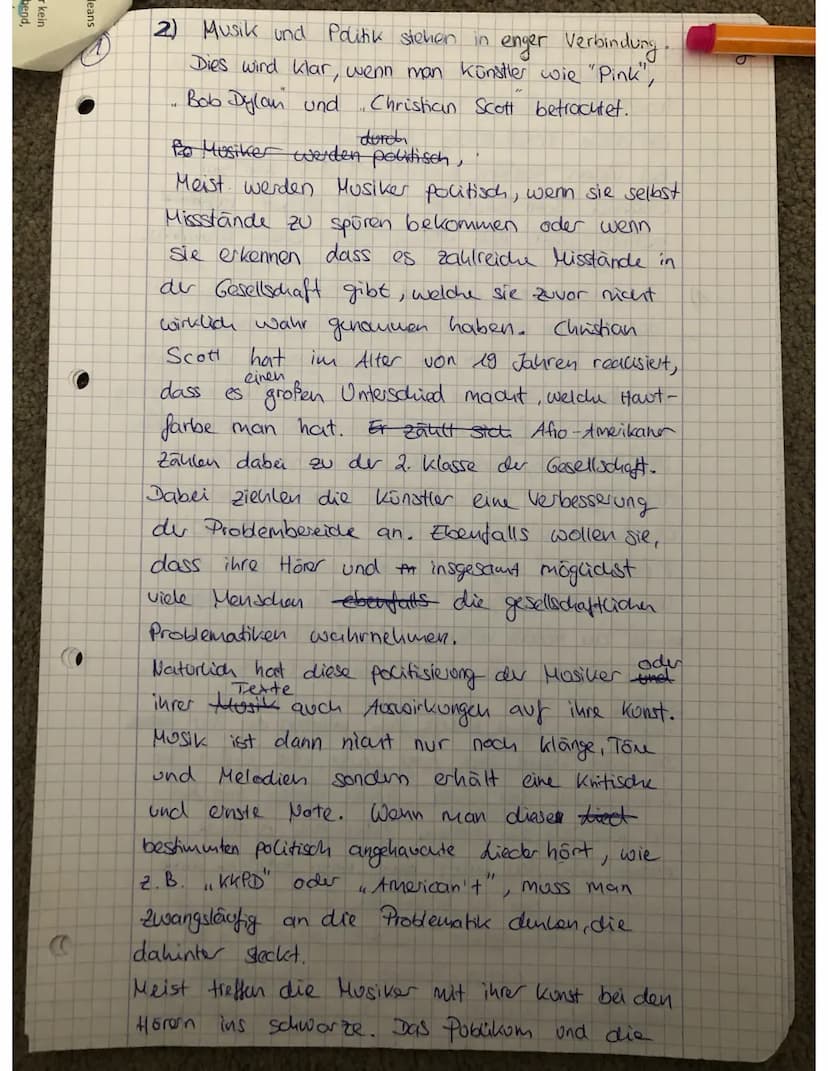 leans
r kein
bend,
1
2) Musik und Politik stehen in enger Verbindung.
Dies wird klar, wenn man Künstler wie "Pink",
"Bob Dylan" und "Christian Scott" betrachtet.
durch
Po Musiker werden politisch,
Meist werden Musiker politisch, wenn sie selbst
Missstände zu spüren bekommen oder wenn
sie erkennen dass es zahlreiche Misstände in
der Gesellschaft gibt, welche sie zuvor nicht
wirklich wahr genommen haben. Christian
Scott hat im Alter von 19 Jahren realisiert,
einen
dass es großen Unterschied macht, welche Haut-
farbe man hat. Er zählt sich Afro-Amerikaner
zählen dabei zu der 2. Klasse der Gesellschaft.
Dabei ziehlen die Künstler eine Verbesserung
der Problembereiche an. Ebenfalls wollen sie,
dass ihre Hörer und insgesamt möglichst
viele Menschen ebenfalls die gesellschaftlichen
Problematiken wahrnehmen.
Natürlich hat diese politisierung der Musiker oder
und
Texte
ihrer Musik auch Auswirkungen auf ihre Kunst.
Musik ist dann nicht nur noch klänge, Töne
und Melodien sondern erhält eine Kritische
und ernste Note. Wenn man diese
bestimmten politisch angehauchte Lieder hört, wie
z.B. "KKPD" oder "American't", muss man
zwangsläufig an die Problematik denken, die
dahinter steckt.
Meist treffen die Musiker mit ihrer Kunst bei den
Hörern ins schwarze. Das Publikum und die